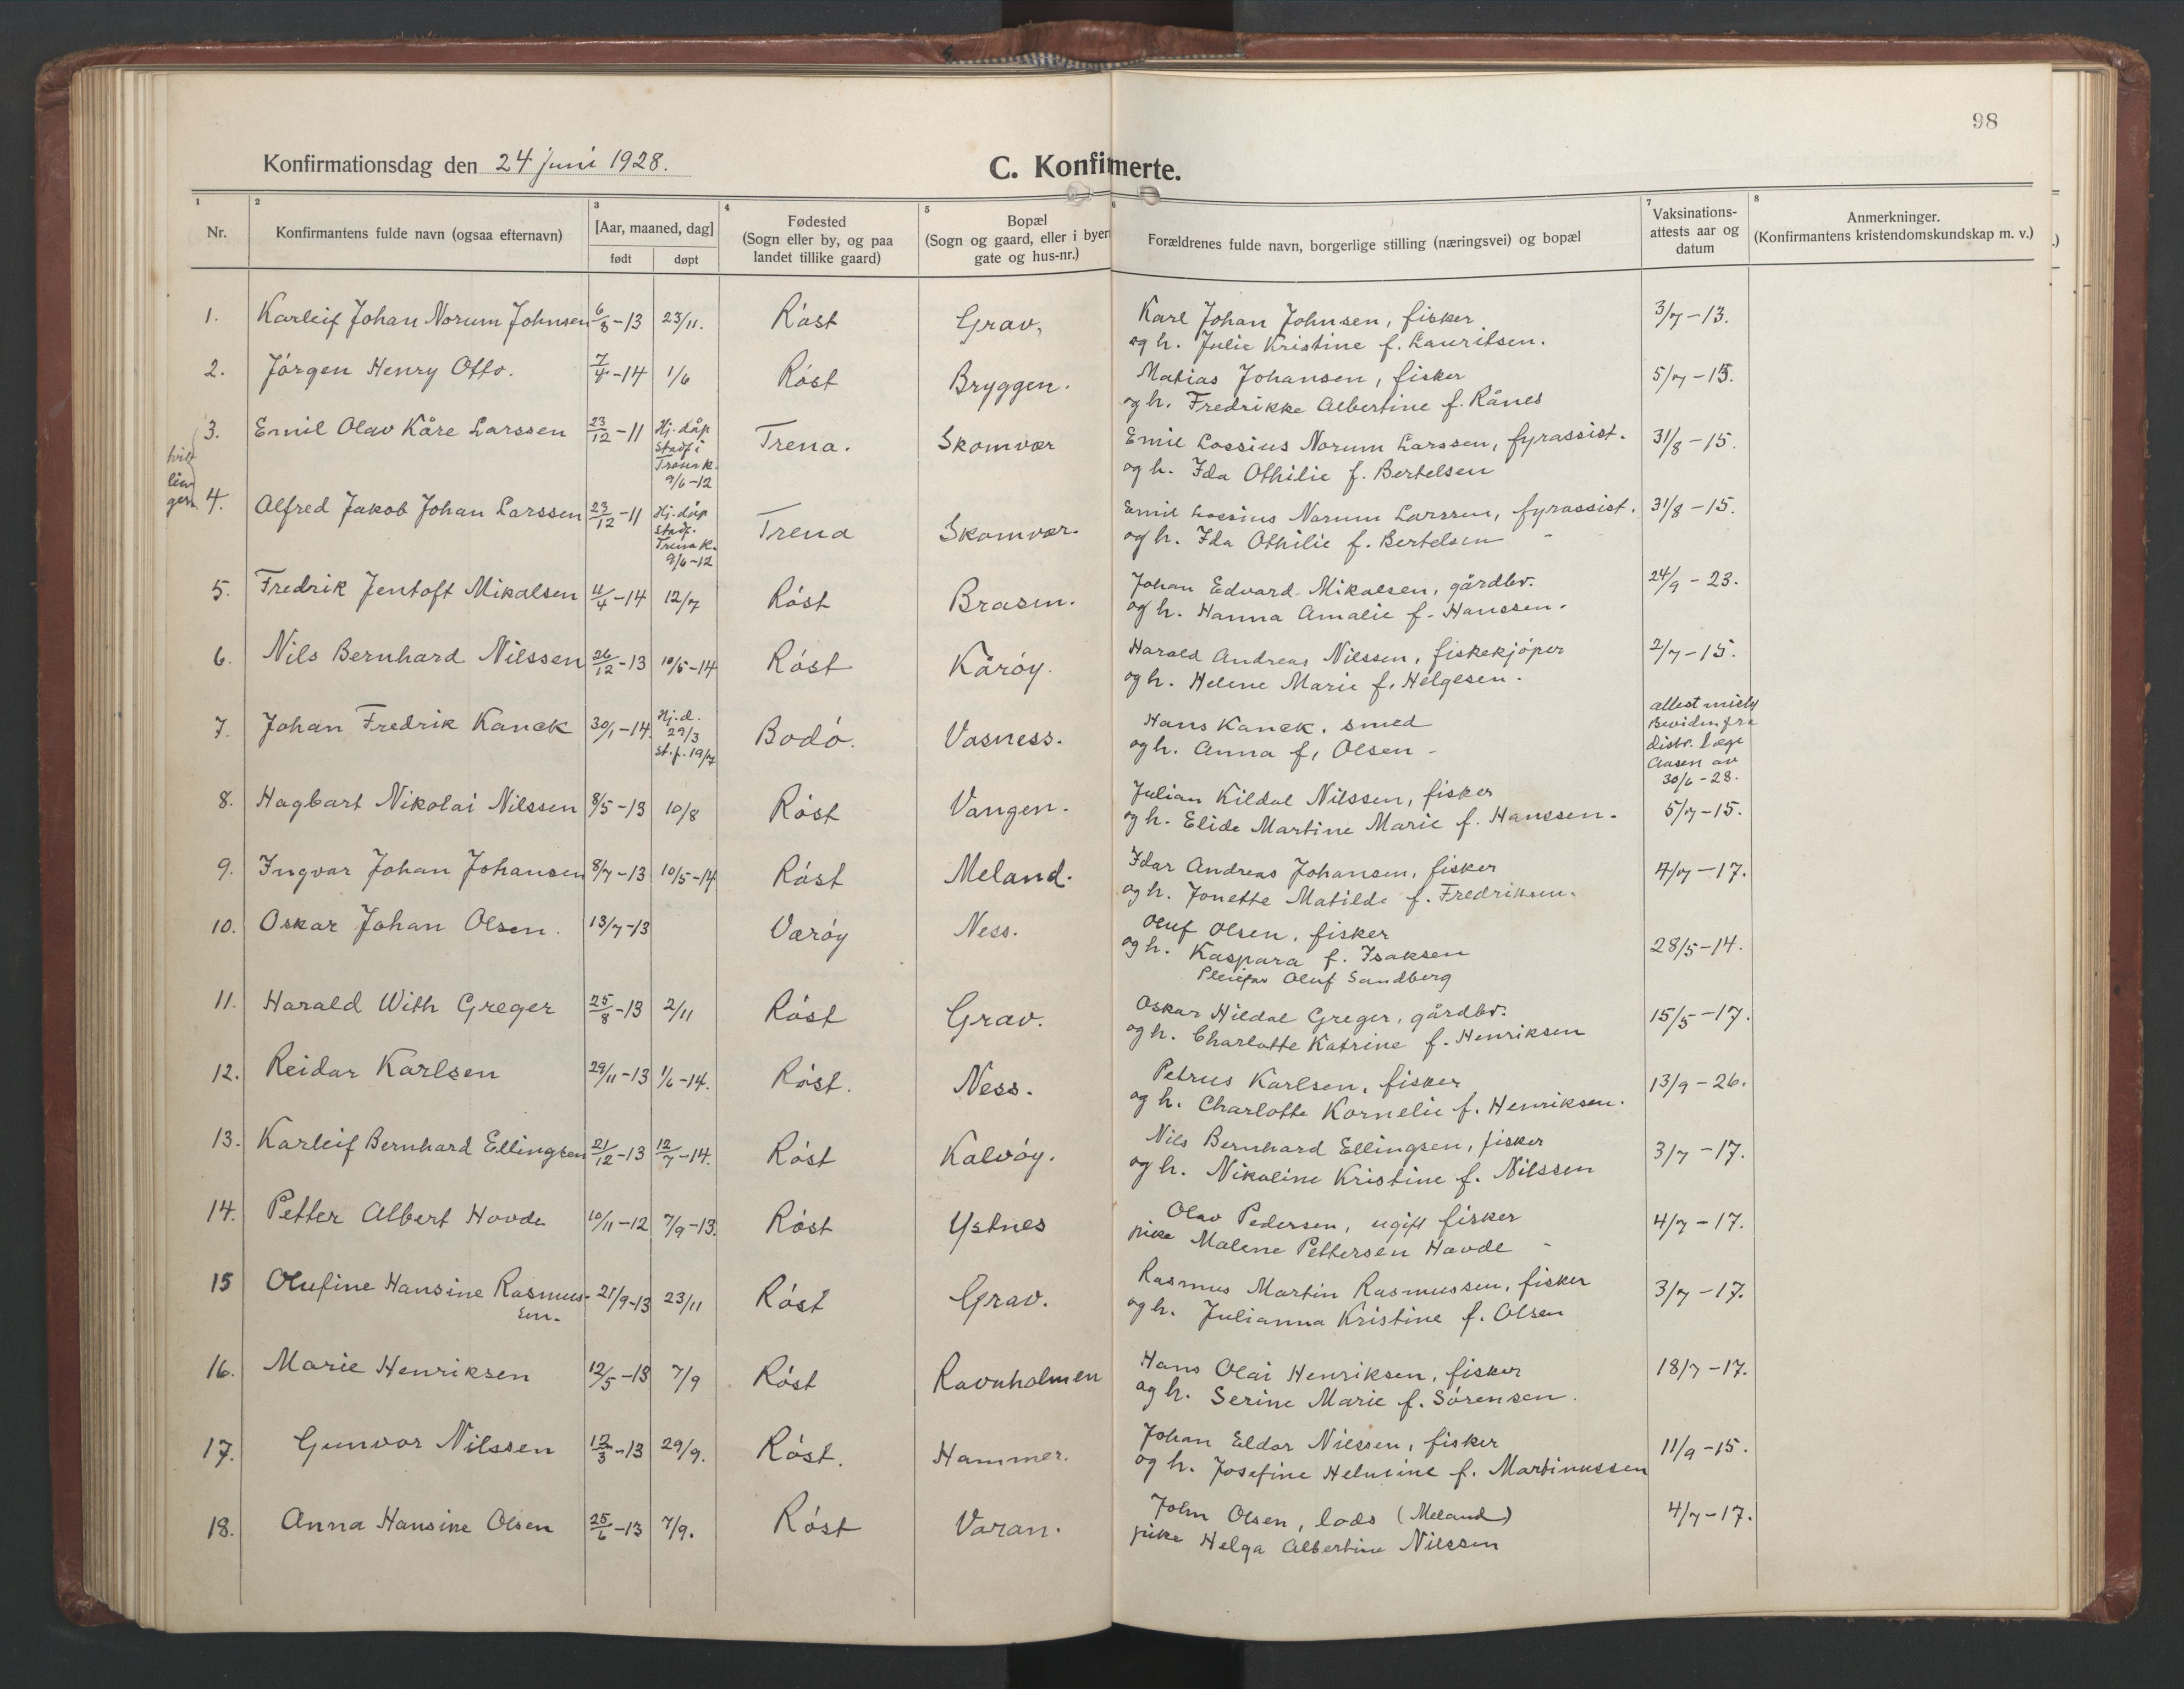 98
Konfirmationsdag den 24 juni 1928.
C. Konfirmerte.
1 2 3 4 5 6 7 8
Nr.
Konfirmantens fulde navn (ogsaa efternavn)
[Aar, maaned, dag]
født døpt
Fødested
(Sogn eller by, og paa
landet tillike gaard)
Bopæl
(Sogn og gaard, eller i byer
gate og hus-nr.)
Forældrenes fulde navn, borgerlige stilling (næringsvei) og bopæl
Vaksinations-
attests aar og
datum
Anmerkninger.
(Konfirmantens kristendomskundskap m. v.)
1. Karleif Johan Norum Johnsen 6/8-13 23/11. Röst Grav, Karl Johan Johnsen, fisker 3/7-13.
og h. Julie Kristine f. Lauritsen.
2. Jörgen Henry Otto. 7/4-14 1/6 Röst Bryggen. Matias Johansen, fisker 5/7-15.
og h. Fredrikke Albertine f. Rånes
3. Emil Olav Kåre Larssen 23/12-11 Hj. dåp Trena. Skomvær Emil Lossius Norum Larssen, fyrassist. 31/8-15.
stadf i
Træna k.
9/6-12
og h. Ida Othilie f. Bertelsen
tvil
lin
ger
4. Alfred Jakob Johan Larssen 23/12-11 Hj. dåp Trena Skomvær. Emil Lossius Norum Larssen, fyrassist. 31/8-15.
stadf.
Trena k.
9/6-12
og h. Ida Othilie f. Bertelsen -
5. Fredrik Jentoft Mikalsen 11/4-14 12/7 Röst Brasen. Johan Edvard Mikalsen, gårdbr. 24/9-23.
og h. Hanna Amalie f. Hanssen.
6. Nils Bernhard Nilssen 26/12-13 10/5-14 Röst Kåröy. Harald Andreas Nilssen, fiskekjöper 2/7-15.
og h. Helene Marie f. Helgesen.
7. Johan Fredrik Kanck 30/1-14. Hj. d. Bodö. Vasness. Hans Kanck. smed
29/3
st. f. 19/7
og h. Anna f. Olsen -
attest
Beviden fra
distr. læge
Aasen av
30/6-28.
8. Hagbart Nikolai Nilssen 8/5-13 10/8 Röst Vangen. Julian Kildal Nilssen, fisker 5/7-15.
og h. Elide Martine Marie f. Hanssen.
9. Ingvar Johan Johansen 8/7-13 10/5-14 Röst Meland. Idar Andreas Johansen, fisker 4/7-17.
og h. Jonette Matilde f. Fredriksen.
10. Oskar Johan Olsen. 13/7-13 Værøy Ness. Oluf Olsen, fisker 28/5-14.
og h. Kaspara f. Isaksen
Pleiefar Oluf Sandberg
11. Harald With Greger 25/8-13 2/11 Röst Grav. Oskar Hildal Greger, gårdbr. 15/5-17.
og h. Charlotte Katrine f. Henriksen
12. Reidar Karlsen 29/11-13 1/6-14. Röst. Ness. Petrus Karlsen, fisker 13/9-26.
og h. Charlotte Kornelie f. Henriksen.
13. Karleif Bernhard Ellingsen 21/12-13 12/7-14. Röst Kalvöy. Nils Bernhard Ellingsen, fisker 3/7-17.
og h. Nikoline Kristine f. Nilssen
14. Petter Albert Hovde 10/11-12 7/9-13. Röst Ystnes Olav Pedersen, ugift fisker 4/7-17.
pike Malene Pettersen Havde -
15 Olufine Hansine Rasmus- 21/9-13 23/11 Röst Grav. Rasmus Martin Rasmussen, fisker 3/7-17.
sen.
og h. Julianna Kristine f. Olsen
16. Marie Henriksen 12/5-13 7/9 Röst Ravnholmen Hans Olai Henriksen, fisker 18/7-17.
og h. Serine Marie f. Sörensen.
17. Gunvor Nilssen 12/3-13 29/9. Röst. Hammer. Johan Eldor Nilssen, fisker 11/9-15.
og h. Josefine Helmine f. Martinussen
18. Anna Hansine Olsen 25/6-13 7/9. Röst Varan. John Olsen, lods (Meland) 4/7-17.
pike Helga Albertine Nilssen